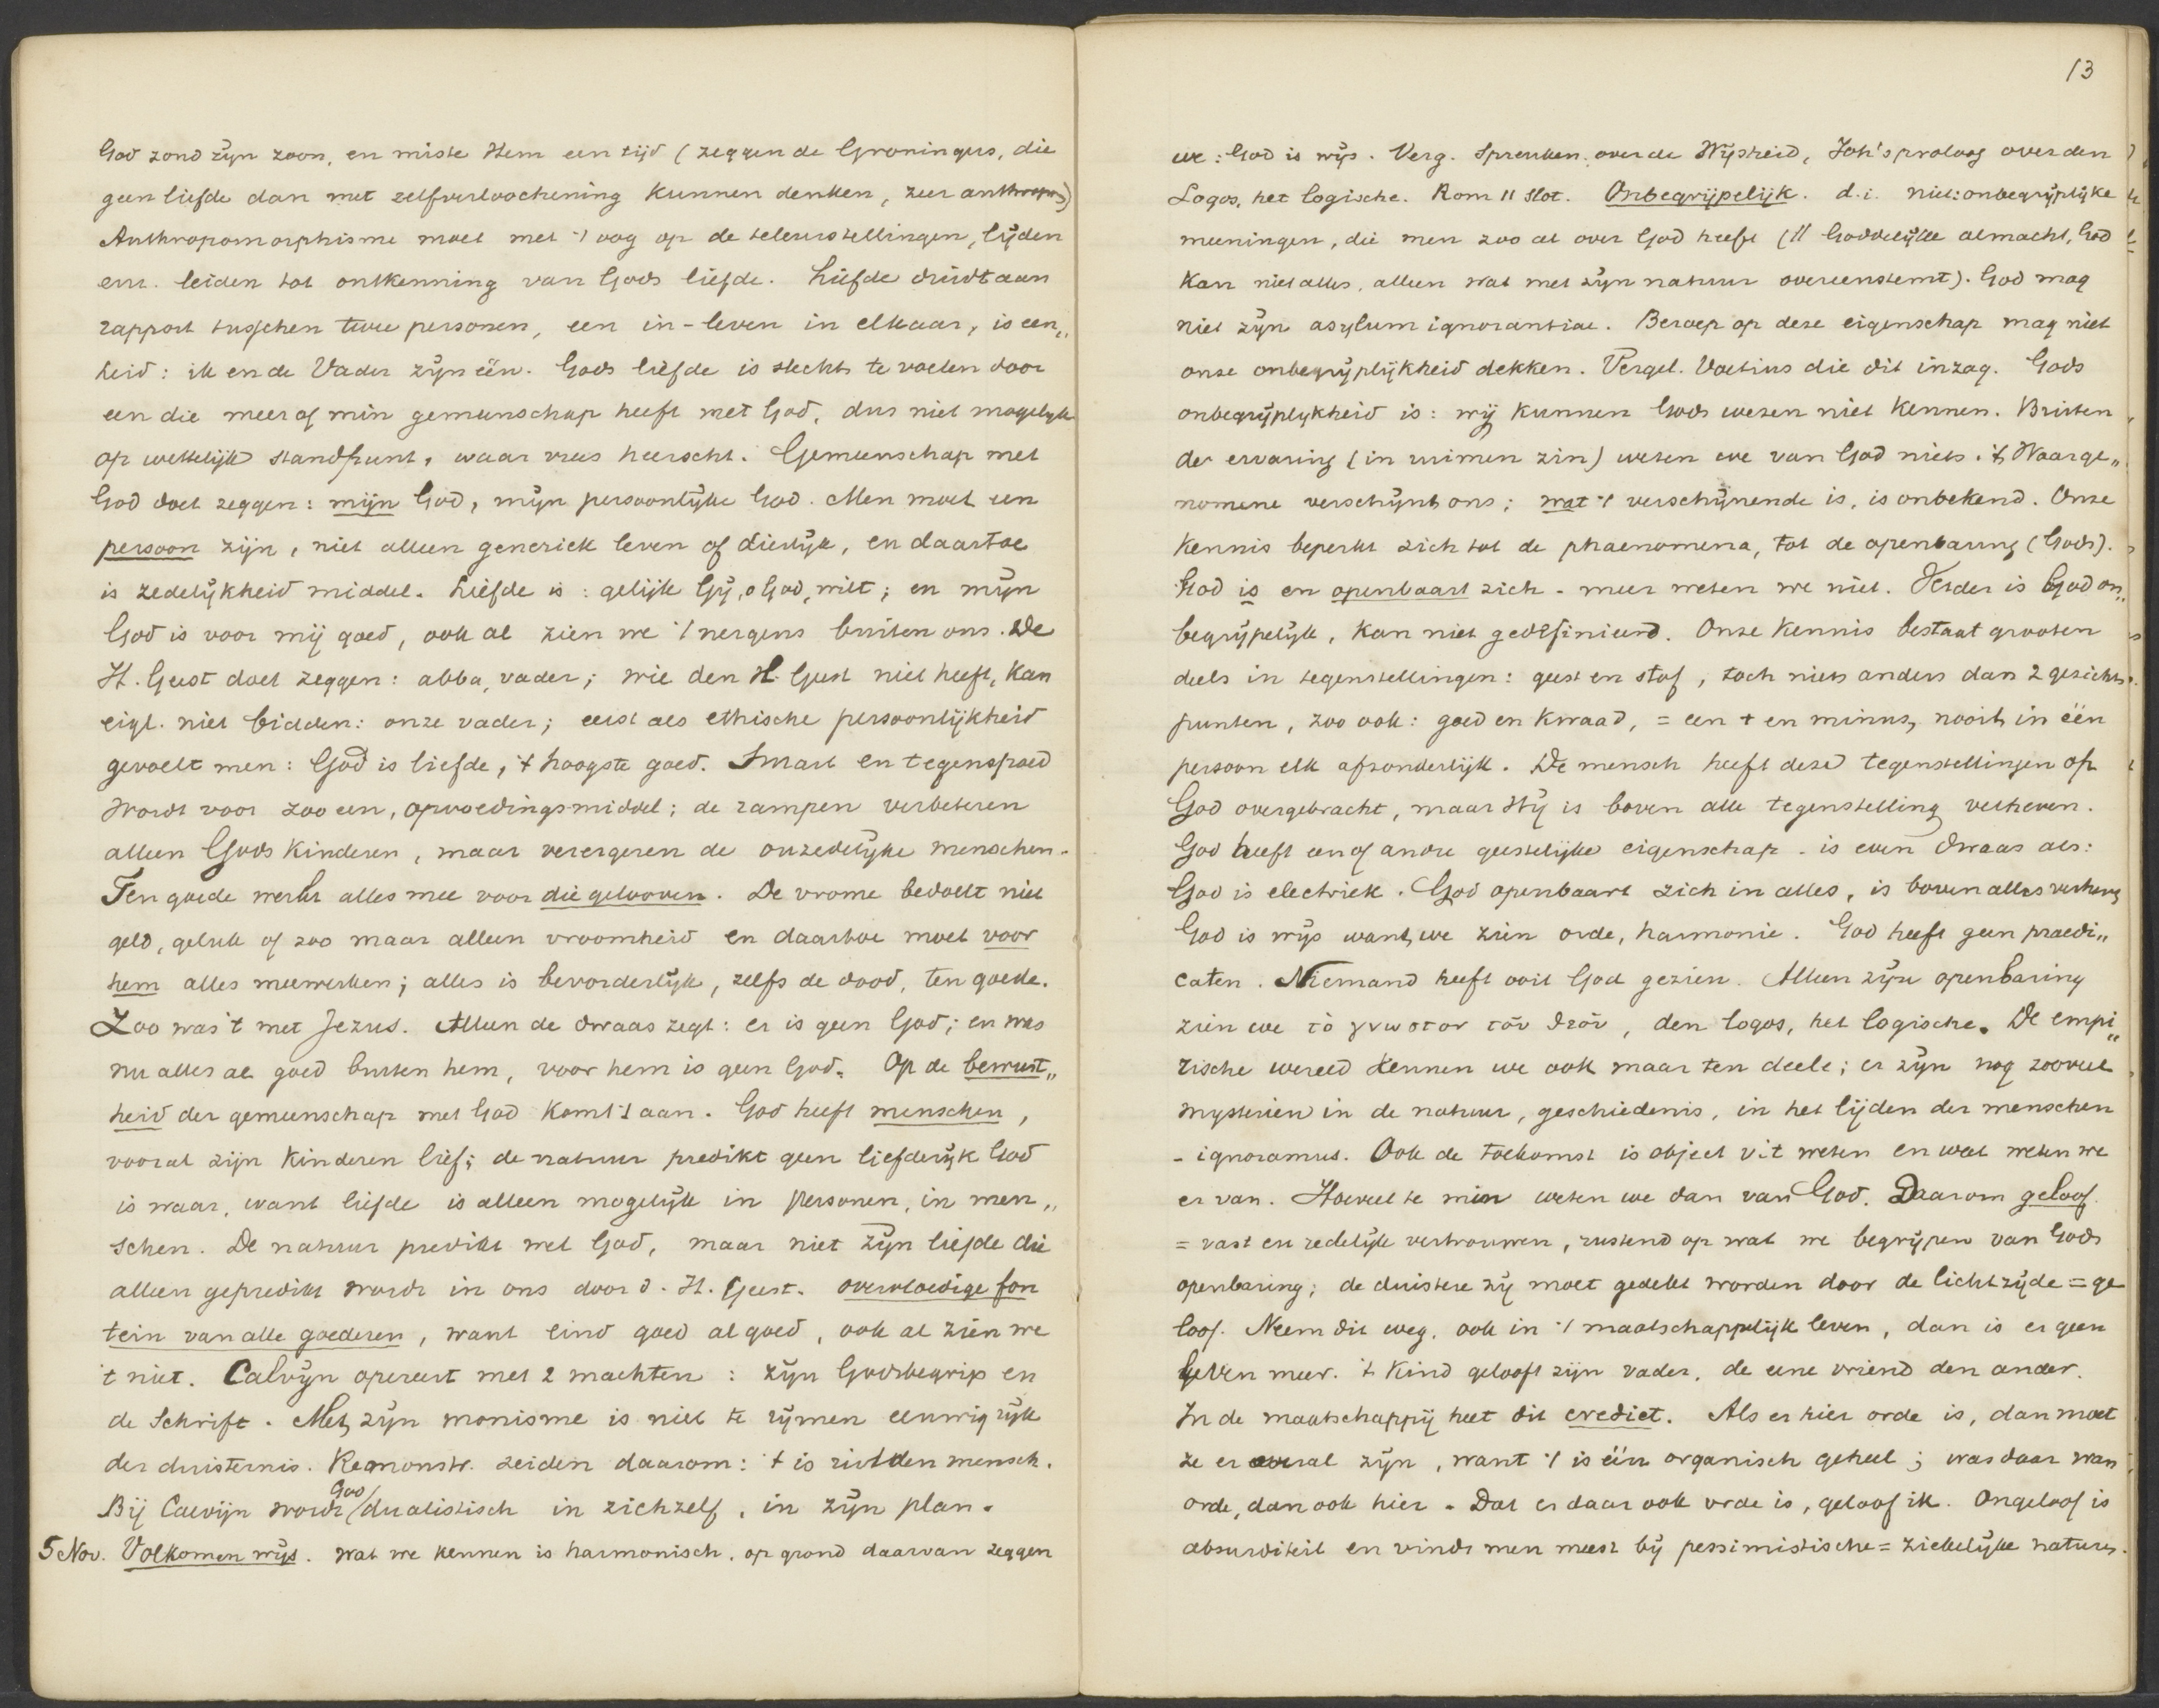 God zond zijn zoon, en miste Hem een tijd (zeggen de Groningers, die
geen liefde dan met zelfverloochening kunnen denken, zeer anthropom)
Anthropomorphisme moet met 't oog op de teleurstellingen, lijden
enz. leiden tot ontkenning van Gods liefde. Liefde duidt aan
rapport tusschen twee personen, een in-leven in elkaar, is een„
heid: ik en de Vader zijn één. Gods liefde is slechts te voelen door
een die meer of min gemeenschap heeft met God, dus niet mogelijk
op wettelijk standpunt, waar vrees heerscht. Gemeenschap met
God doet zeggen: mijn God, mijn persoonlijke God. Men moet een
persoon zijn, niet alleen generiek leven of dierlijk, en daartoe
is zedelijkheid middel. Liefde is: gelijk Gij, o God, wilt; en mijn
God is voor mij goed, ook al zien we 't nergens buiten ons. De
H. Geest doet zeggen: abba, vader; wie den H. Geest niet heeft, kan
eigl. niet bidden: onze vader; eerst als ethische persoonlijkheid
gevoelt men: God is liefde, 't hoogste goed. Smart en tegenspoed
wordt voor zoo een, opvoedingsmiddel; de rampen verbeteren
alleen Gods kinderen, maar verergeren de onzedelijke menschen.
Ten goede werkt alles mee voor die gelooven. De vrome bedoelt niet
geld, geluk of zoo maar alleen vroomheid en daartoe moet voor
hem alles meewerken; alles is bevorderlijk, zelfs de dood, ten goede.
Zoo was 't met Jezus. Alleen de dwaas zegt: er is geen God; en was
nu alles al goed buiten hem, voor hem is geen God. Op de bewust„
heid der gemeenschap met God komt 't aan. God heeft menschen,
vooral zijn kinderen lief; de natuur predikt geen liefderijk God
is waar, want liefde is alleen mogelijk in personen, in men„
schen. De natuur predikt wel God, maar niet zijn liefde die
alleen gepredikt wordt in ons door d. H. Geest. overvloedige fon
tein van alle goederen, want eind goed al goed, ook al zien we
't niet. Calvijn opereert met 2 machten: zijn Godsbegrip en
de Schrift. Met zijn monisme is niet te rijmen eeuwig rijk
der duisternis. Remonstr. zeiden daarom: 't is uit den mensch.
Bij Calvijn wordt God dualistisch in zichzelf, in zijn plan.
5 Nov. Volkomen wijs. Wat we kennen is harmonisch, op grond daarvan zeggen
13
we: God is wijs. Verg. Spreuken over de Wijsheid, Joh's proloog over den
Logos, het logische. Rom 11 slot. Onbegrijpelijk. d.i. niet: onbegrijplijke
meeningen, die men zoo al over God heeft (// Goddelijke almacht, God
kan niet alles, alleen wat met zijn natuur overeenstemt). God mag
niet zijn asylum ignorantiae. Beroep op deze eigenschap mag niet
onze onbegrijplijkheid dekken. Vergel. Voetius die dit inzag. Gods
onbegrijplijkheid is: wij kunnen Gods wezen niet kennen. Buiten
de ervaring (in ruimen zin) weten we van God niets. 't Waarge„
nomene verschijnt ons; wat 't verschijnende is, is onbekend. Onze
kennis beperkt zich tot de phaenomena, tot de openbaring (Gods).
God is en openbaart zich - meer weten we niet. Verder is God on„
begrijpelijk, kan niet gedefinieerd. Onze kennis bestaat grooten
deels in tegenstellingen: geest en stof, toch niets anders dan 2 gezichts
punten, zoo ook: goed en kwaad, = een + en minus, nooit in één
persoon elk afzonderlijk. De mensch heeft deze tegenstellingen op
God overgebracht, maar Hij is boven alle tegenstelling verheven.
God heeft een of andre geestelijke eigenschap - is even dwaas als:
God is electriek. God openbaart zich in alles, is boven alles verheven
God is wijs want we zien orde, harmonie. God heeft geen praedi„
caten. Niemand heeft ooit God gezien. Alleen zijn openbaring
zien we τὸ γνωστον τοῦ θεοῦ, den logos, het logische. De empi„
rische wereld kennen we ook maar ten deele; er zijn nog zooveel
mysteriën in de natuur, geschiedenis, in het lijden der menschen
- ignoramus. Ook de toekomst is object v. 't weten en wat weten we
er van. Hoeveel te min weten we dan van God. Daarom geloof
= vast en redelijk vertrouwen, rustend op wat we begrijpen van Gods
openbaring; de duistere zij moet gedekt worden door de lichtzijde = ge
loof. Neem dit weg, ook in 't maatschappelijk leven, dan is er geen
leven meer. 't Kind gelooft zijn vader, de eene vriend den ander.
In de maatschappij heet dit crediet. Als er hier orde is, dan moet
ze er overal zijn, want 't is één organisch geheel; was daar wan
orde, dan ook hier. Dat er daar ook orde is, geloof ik. Ongeloof is
absurditeit en vindt men meest bij pessimistische = ziekelijke naturen.